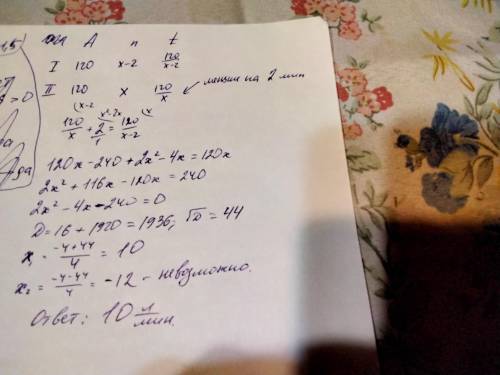 A n t
I 120 x-2 120/(x-2)
II 120 x 120/x меньше на 2 мин
(x-2 x²-2x (x
120/x + 2/1 = 120/(x-2)
120x-240+2x²-4x=120x
2x²+116x-120x=240
2x²-4x-240=0
D=16+1920=1936; √D=44
x₁= (-4+44)/4 = 10
x₂= (-4-44)/4 = -12 - невозможно.
Ответ: 10 л/мин.